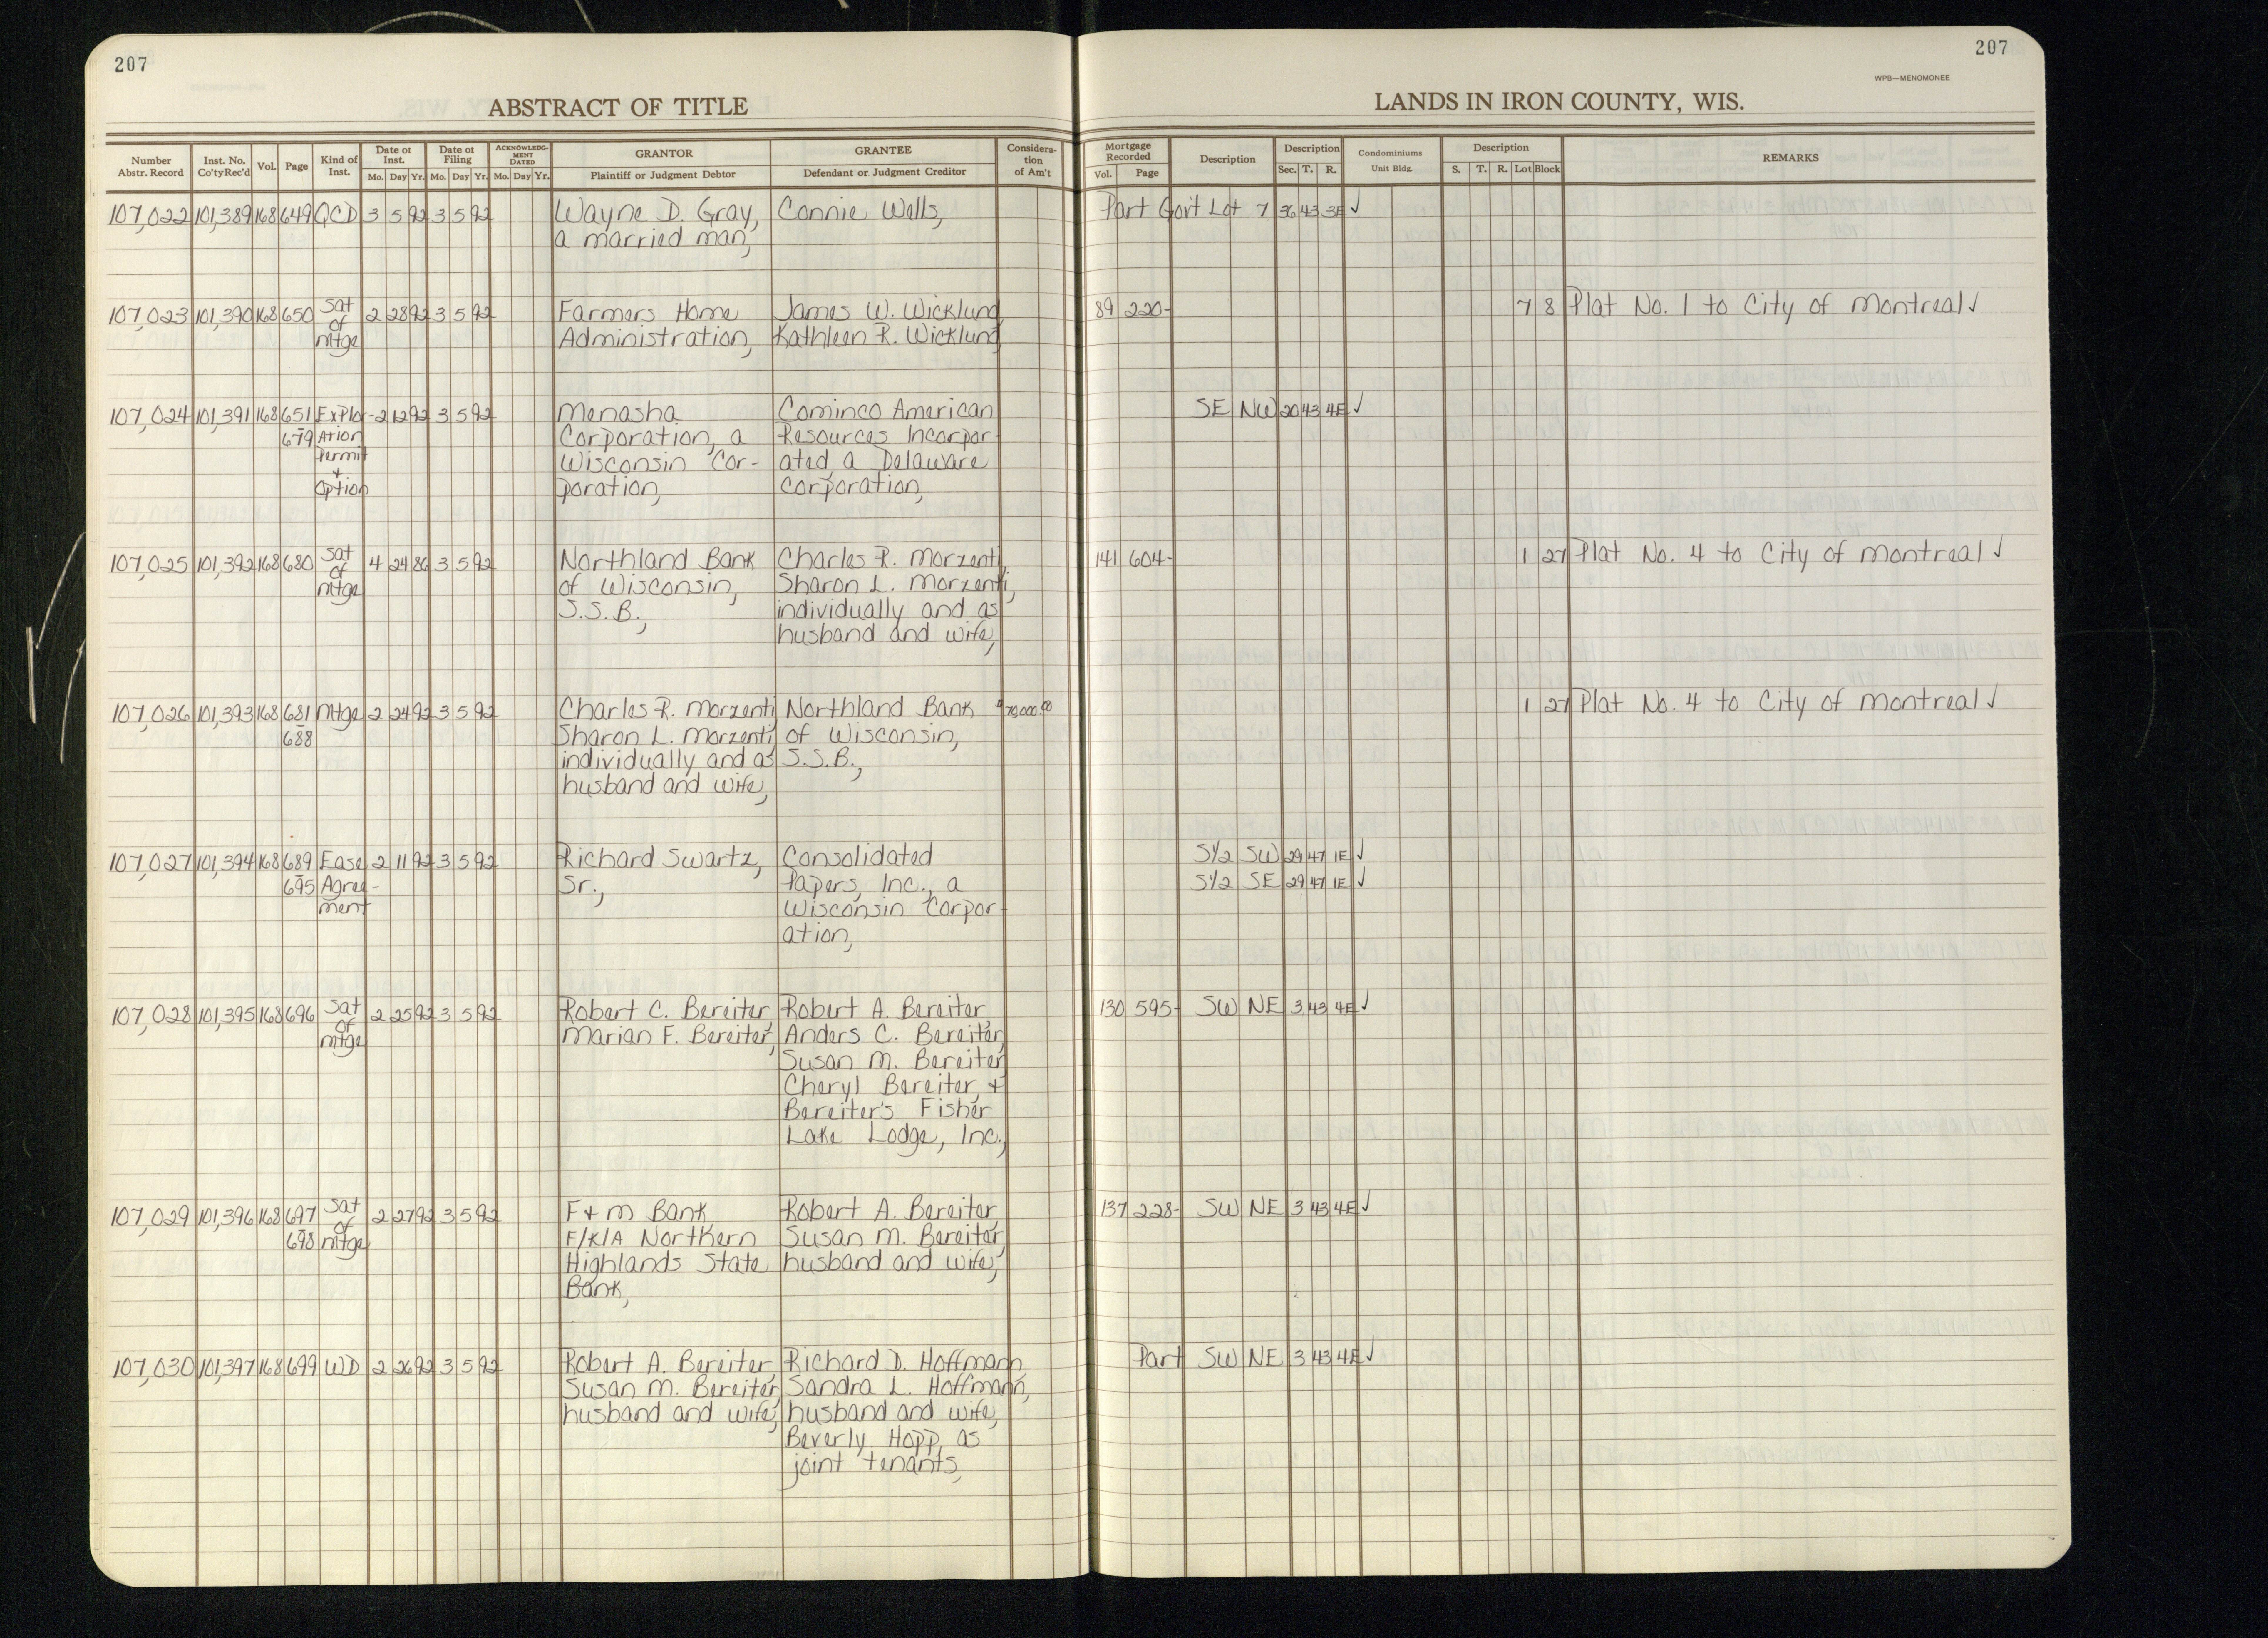 207
207
WPB—MENOMONEE
ABSTRACT OF TITLE
LANDS IN IRON COUNTY, WIS.
Number Abstr. Record | Inst. No. Co'ty Rec'd | Vol. | Page | Kind of Inst. | Date of Inst. Mo. Day Yr. | Date of Filing Mo. Day Yr. | ACKNOWLEDG-MENT DATED Mo. Day Yr. | GRANTOR Plaintiff or Judgment Debtor | GRANTEE Defendant or Judgment Creditor | Considera-tion of Am't | Mortgage Recorded Vol. Page | Description | Description Sec. T. R. | Condominiums Unit Bldg. | Description S. T. R. Lot Block | REMARKS
107,022 101,389 168 649 QCD 3 5 92 3 5 92 Wayne D. Gray, Connie Wells, Part Gov't Lot 7 36 43 3E ✓
a married man,
107,023 101,390 168 650 Sat 2 28 92 3 5 92 Farmers Home James W. Wicklund 89 220- 7 8 Plat No. 1 to City of Montreal ✓
of Administration, Kathleen R. Wicklund
mtge
107,024 101,391 168 651 Explor- 2 12 92 3 5 92 Menasha Cominco American SE NW 20 43 4E ✓
679 ation Corporation, a Resources Incorpor-
Permit Wisconsin Cor- ated, a Delaware
+
Option poration, corporation,
107,025 101,392 168 680 Sat 4 24 86 3 5 92 Northland Bank Charles R. Morzenti, 141 604- 1 27 Plat No. 4 to City of Montreal ✓
of of Wisconsin, Sharon L. Morzenti,
mtge S.S.B., individually and as
husband and wife,
107,026 101,393 168 681 Mtge 2 24 92 3 5 92 Charles R. Morzenti, Northland Bank $70,000.00 1 27 Plat No. 4 to City of Montreal ✓
688 Sharon L. Morzenti, of Wisconsin,
individually and as S.S.B.,
husband and wife,
107,027 101,394 168 689 Ease 2 11 92 3 5 92 Richard Swartz, Consolidated S1/2 SW 29 47 1E ✓
695 Agree- Sr., Papers, Inc., a S1/2 SE 29 47 1E ✓
ment Wisconsin Corpor-
ation,
107,028 101,395 168 696 Sat 2 25 92 3 5 92 Robert C. Bereiter Robert A. Bereiter 130 595- SW NE 3 43 4E ✓
of Marian F. Bereiter, Anders C. Bereiter,
mtge Susan M. Bereiter
Cheryl Bereiter, +
Bereiter's Fisher
Lake Lodge, Inc.,
107,029 101,396 168 697 Sat 2 27 92 3 5 92 F + M Bank Robert A. Bereiter, 137 228- SW NE 3 43 4E ✓
698 of mtge F/K/A Northern Susan M. Bereiter,
Highlands State husband and wife,
Bank,
107,030 101,397 168 699 WD 2 26 92 3 5 92 Robert A. Bereiter, Richard D. Hoffmann, Part SW NE 3 43 4E ✓
Susan M. Bereiter, Sandra L. Hoffmann,
husband and wife, husband and wife,
Beverly Hopp, as
joint tenants,